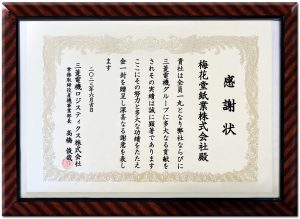 感謝状
梅花堂紙業株式会社殿
貴社は全員一丸となり弊社ならびに
三菱電機グループに多大なる貢献を
されその実績は誠に顕著であります
ここにその努力と多大な功績をたたえ
金一封を贈呈し深甚なる謝意を表し
ます
二〇二三年六月吉日
三菱電機ロジスティクス株式会社
常務取締役産機事業部長 高橋 俊哉